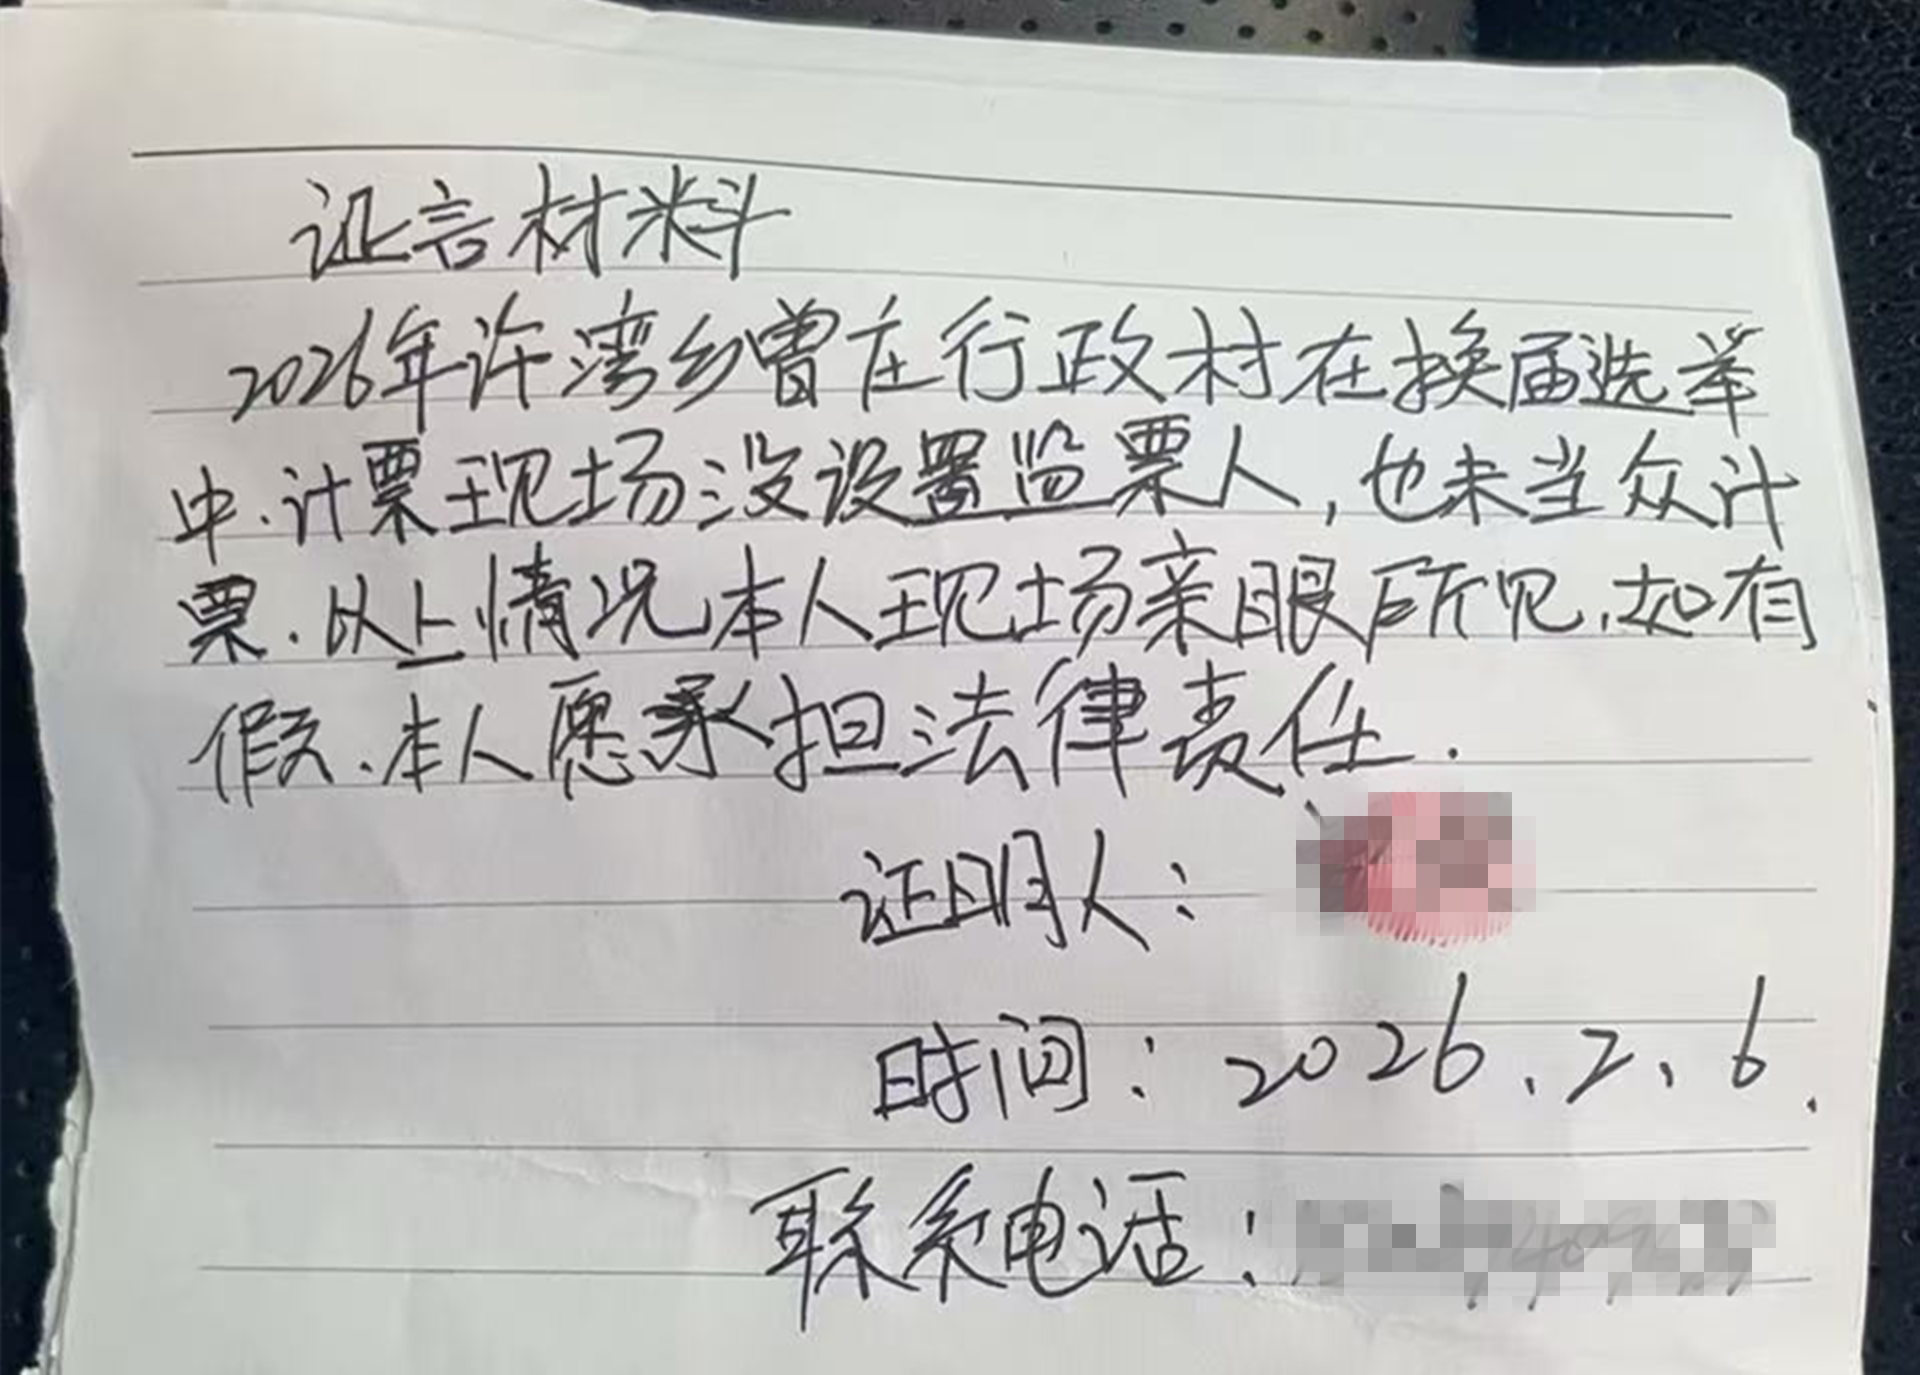 证言材料
2026年许湾乡曾庄行政村在换届选举
中.计票现场没设置监票人,也未当众计
票.以上情况本人现场亲眼所见.如有
假.本人愿承担法律责任.
证明人:
时间:2026.2.6.
联系电话: